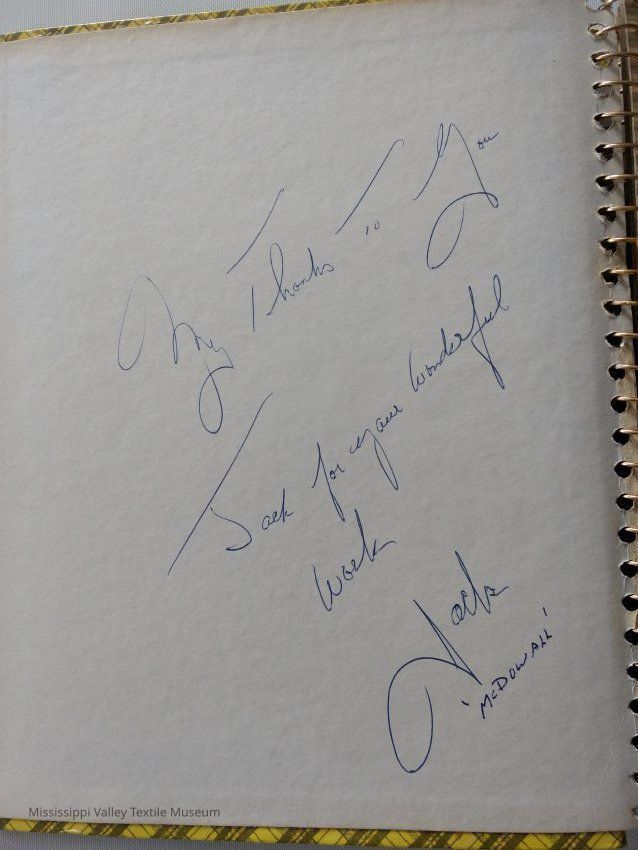 My Thanks to You
Jack for your Wonderful
Work
Jack
'McDOWALL'
Mississippi Valley Textile Museum